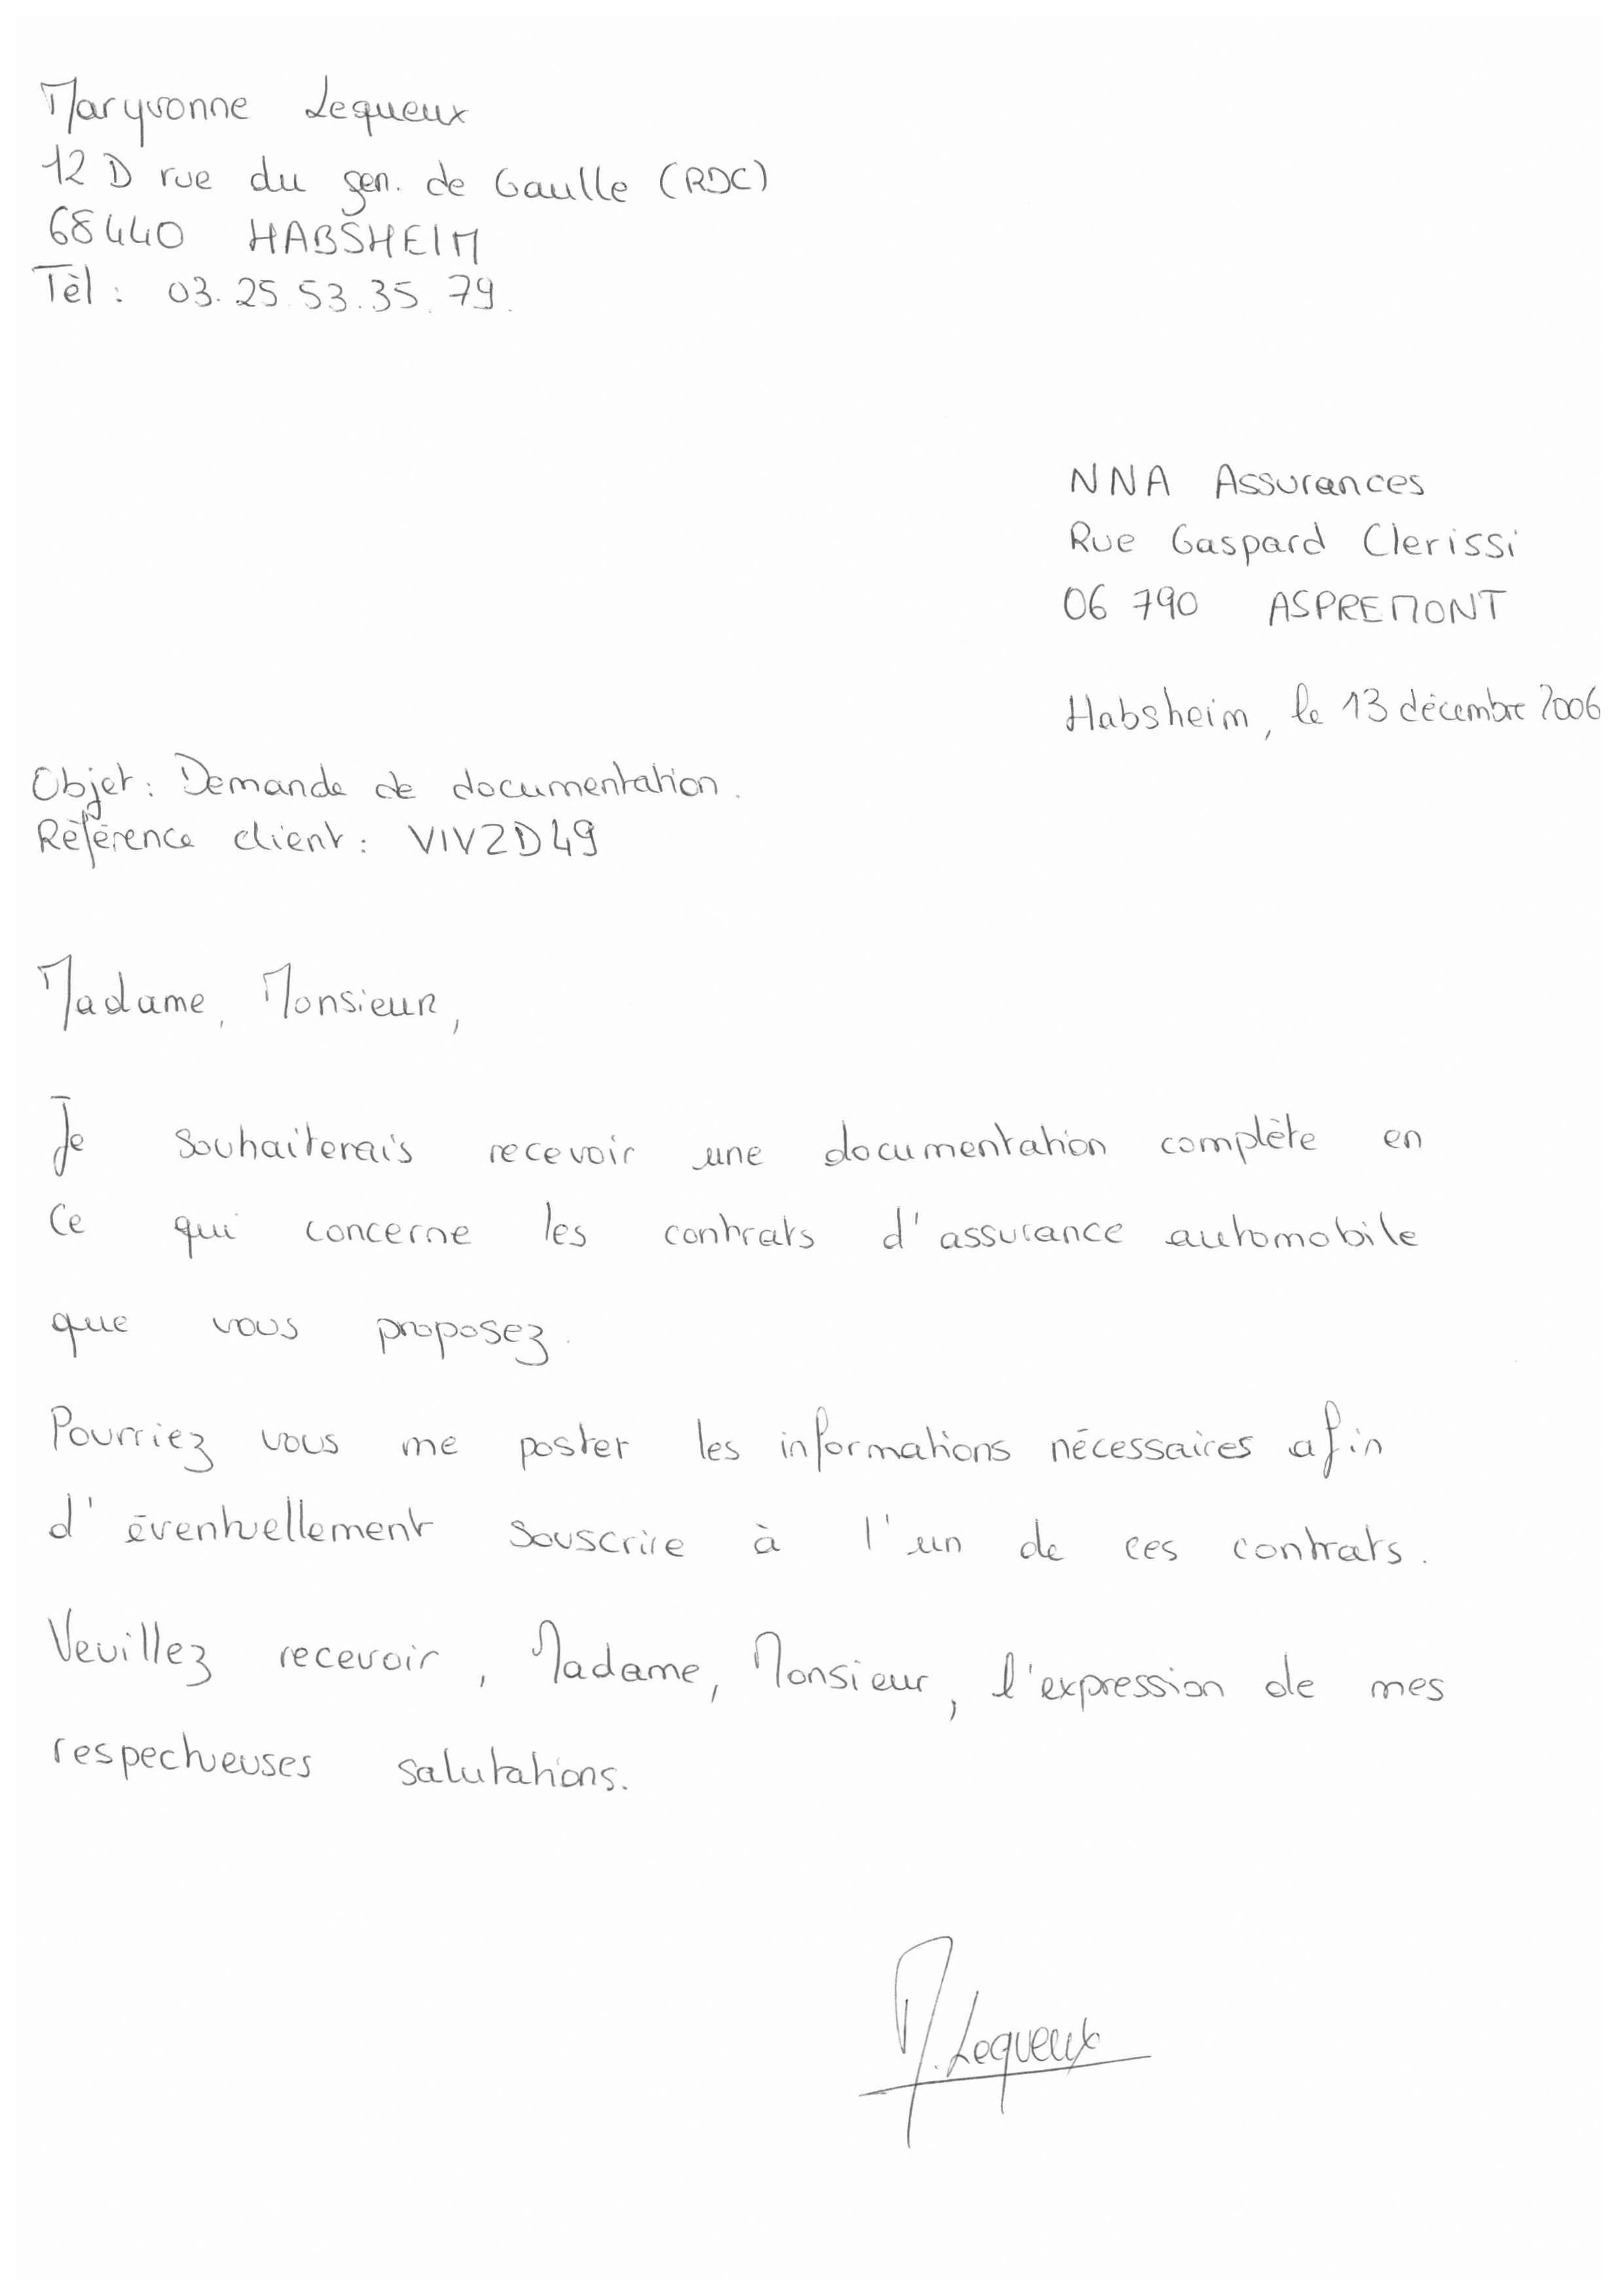 Maryvonne Lequeux
12 D rue du gen. de Gaulle (RDC)
68440 HABSHEIM
Tèl : 03.25.53.35.79.
NNA Assurances
Rue Gaspard Clerissi
06 790 ASPREMONT
Habsheim, le 13 décembre 2006
Objet : Demande de documentation.
Référence client : VIVZD49
Madame, Monsieur,
Je souhaiterais recevoir une documentation complète en
ce qui concerne les contrats d'assurance automobile
que vous proposez.
Pourriez vous me poster les informations nécessaires afin
d'éventuellement souscrire à l'un de ces contrats.
Veuillez recevoir, Madame, Monsieur, l'expression de mes
respectueuses salutations.
M. Lequeux